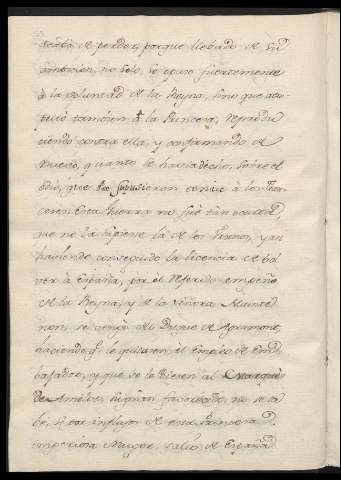 acaba de perder, porque llebado de su
ambicion, no solo se opuso fuertemente
à la voluntad de la Reyna, sino que atro
pelló tambien à la Princesa, reprodu
ciendo contra ella, y confirmando de
nuevo, quanto le havia dicho, sobre el
odio, que supusieron tenia à los Fran
ceses. Esta Guerra no fué tan oculta,
que no la supiese la de los Ursinos, y an
haviendo conseguido la licencia de bol
ver à España, por el referido empeño
de la Reyna, y de la Señora Mainte
non, se vengò del Duque de Agramont,
haciendo q. le quitasen el empleo de Em
bajador, y que se le diesen al Marques
de Amelot, sugeto favorecido, no se sa
be, si por influjos de esta Princesa
imperiosa Muger, salio de España